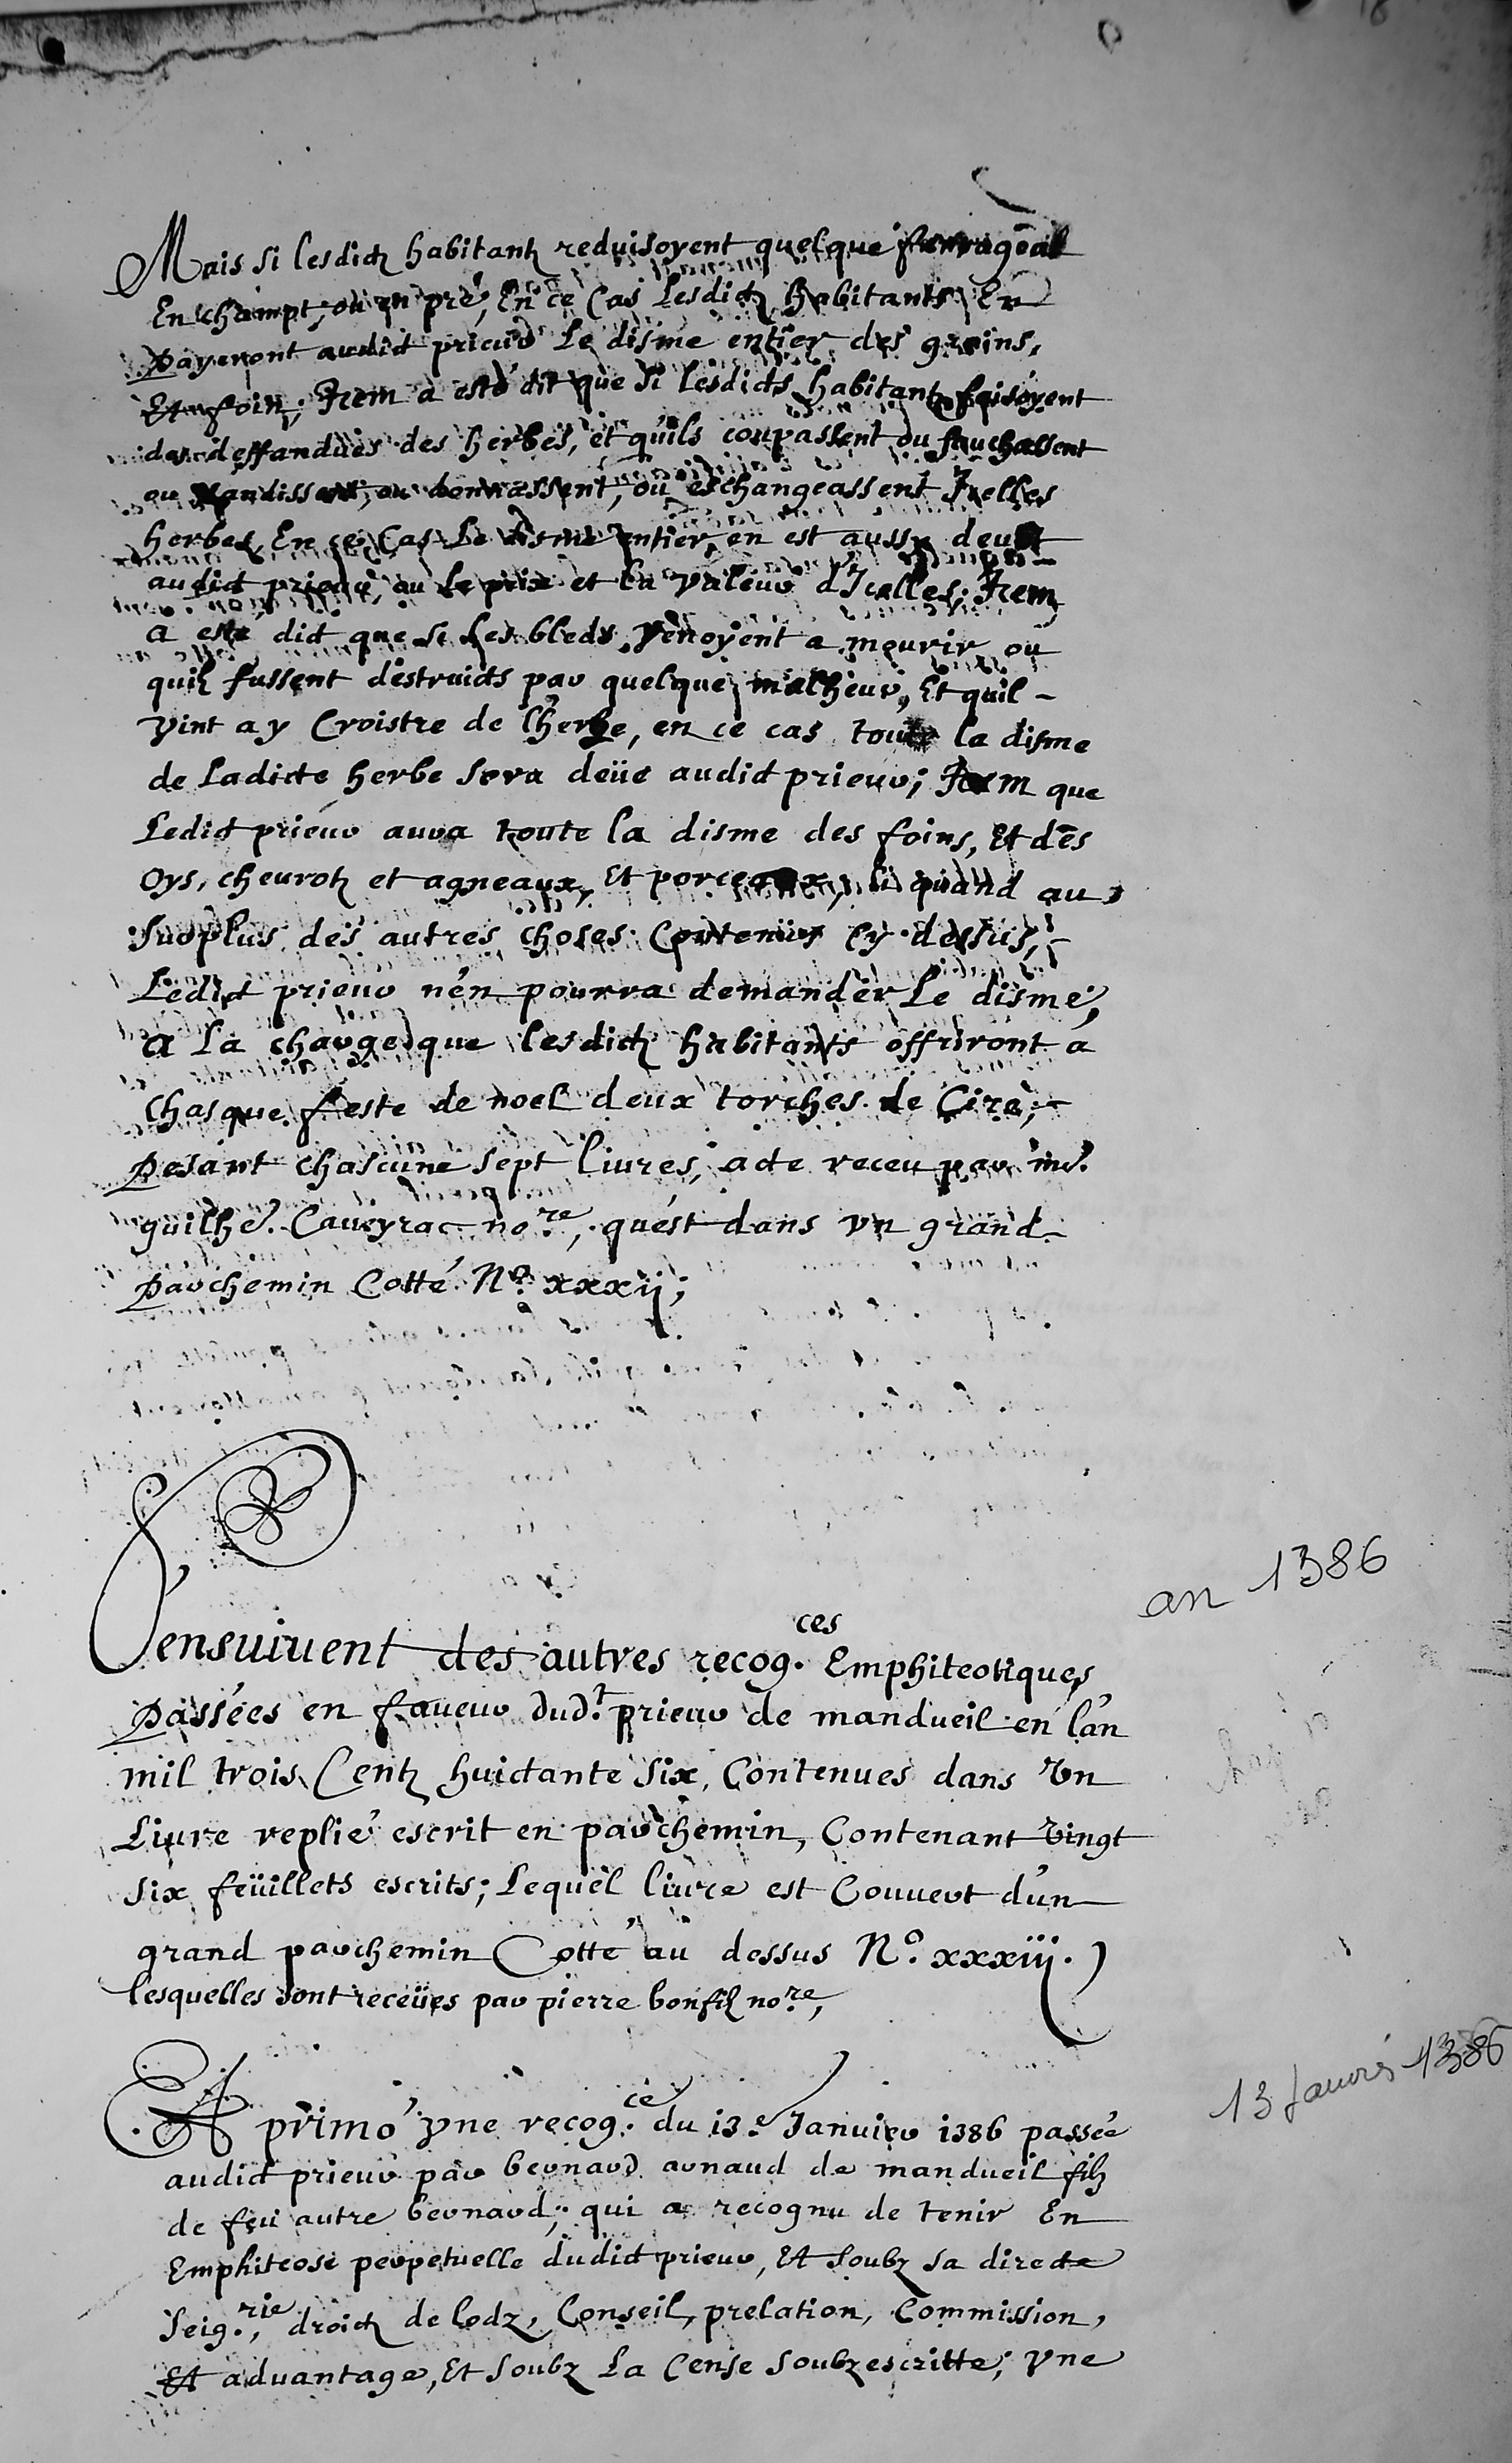 Mais si lesdictz habitantz reduisoyent quelque ferrageal
En champt, ou en pré, En ce Cas Lesdictz Habitants En
Payeront audict prieur Le disme entier des grains,
Et foin; Item a esté dit que si lesdicts habitantz faisoyent
des deffandues des herbes, et quils coupassent ou fauchassent
ou vandissent, ou donnassent, ou eschangeassent Icelles
herbes En ce Cas Le disme entier, en est aussy deu
audict prieur, ou Le prix et la Valeur d'Icelles; Item
a esté dict que si Les bleds Venoyent a mourir ou
quilz fussent destruicts par quelque malheur, Et quil -
Vint a y Croistre de l'herbe, en ce cas toute la disme
de Ladicte herbe sera deüe audict prieur; Item que
Ledict prieur aura toute la disme des foins, Et des
Oys, cheurotz et agneaux, Et porceaux, quand au
surplus des autres choses Contenues Cy dessus,
Ledict prieur n'en pourra demander Le disme,
a La charge que lesdictz habitants offriront a
Chasque feste de noel deux torches de Cire,
Pesant chascune sept liures, acte receu par me.
guilhe. Caueyrac no.re, quest dans vn grand
Parchemin Cotté N.o xxxij;
an 1386
Sensuiuent des autres recog.ces Emphiteotiques
Passées en faueur dud.t prieur de mandueil en l'an
mil trois Centz huictante Six, Contenues dans Vn
Liure replié escrit en parchemin, Contenant Vingt
Six feüillets escrits; Lequel liure est Couuert d'un
grand parchemin Cotté au dessus N.o xxxiij.
lesquelles sont receües par pierre bonfilz no.re,
13 Janvier 1386
Et primo vne recog.ce du 13.e Januier 1386 passée
audict prieur par bernard arnaud de mandueil filz
de feu autre bernard; qui a recognu de tenir En
Emphiteose perpetuelle dudict prieur, Et Soubz sa directe
Seig.rie, droictz de lodz, Conseil, prelation, Commission,
Et aduantage, Et Soubz La Cense Soubzescritte; vne